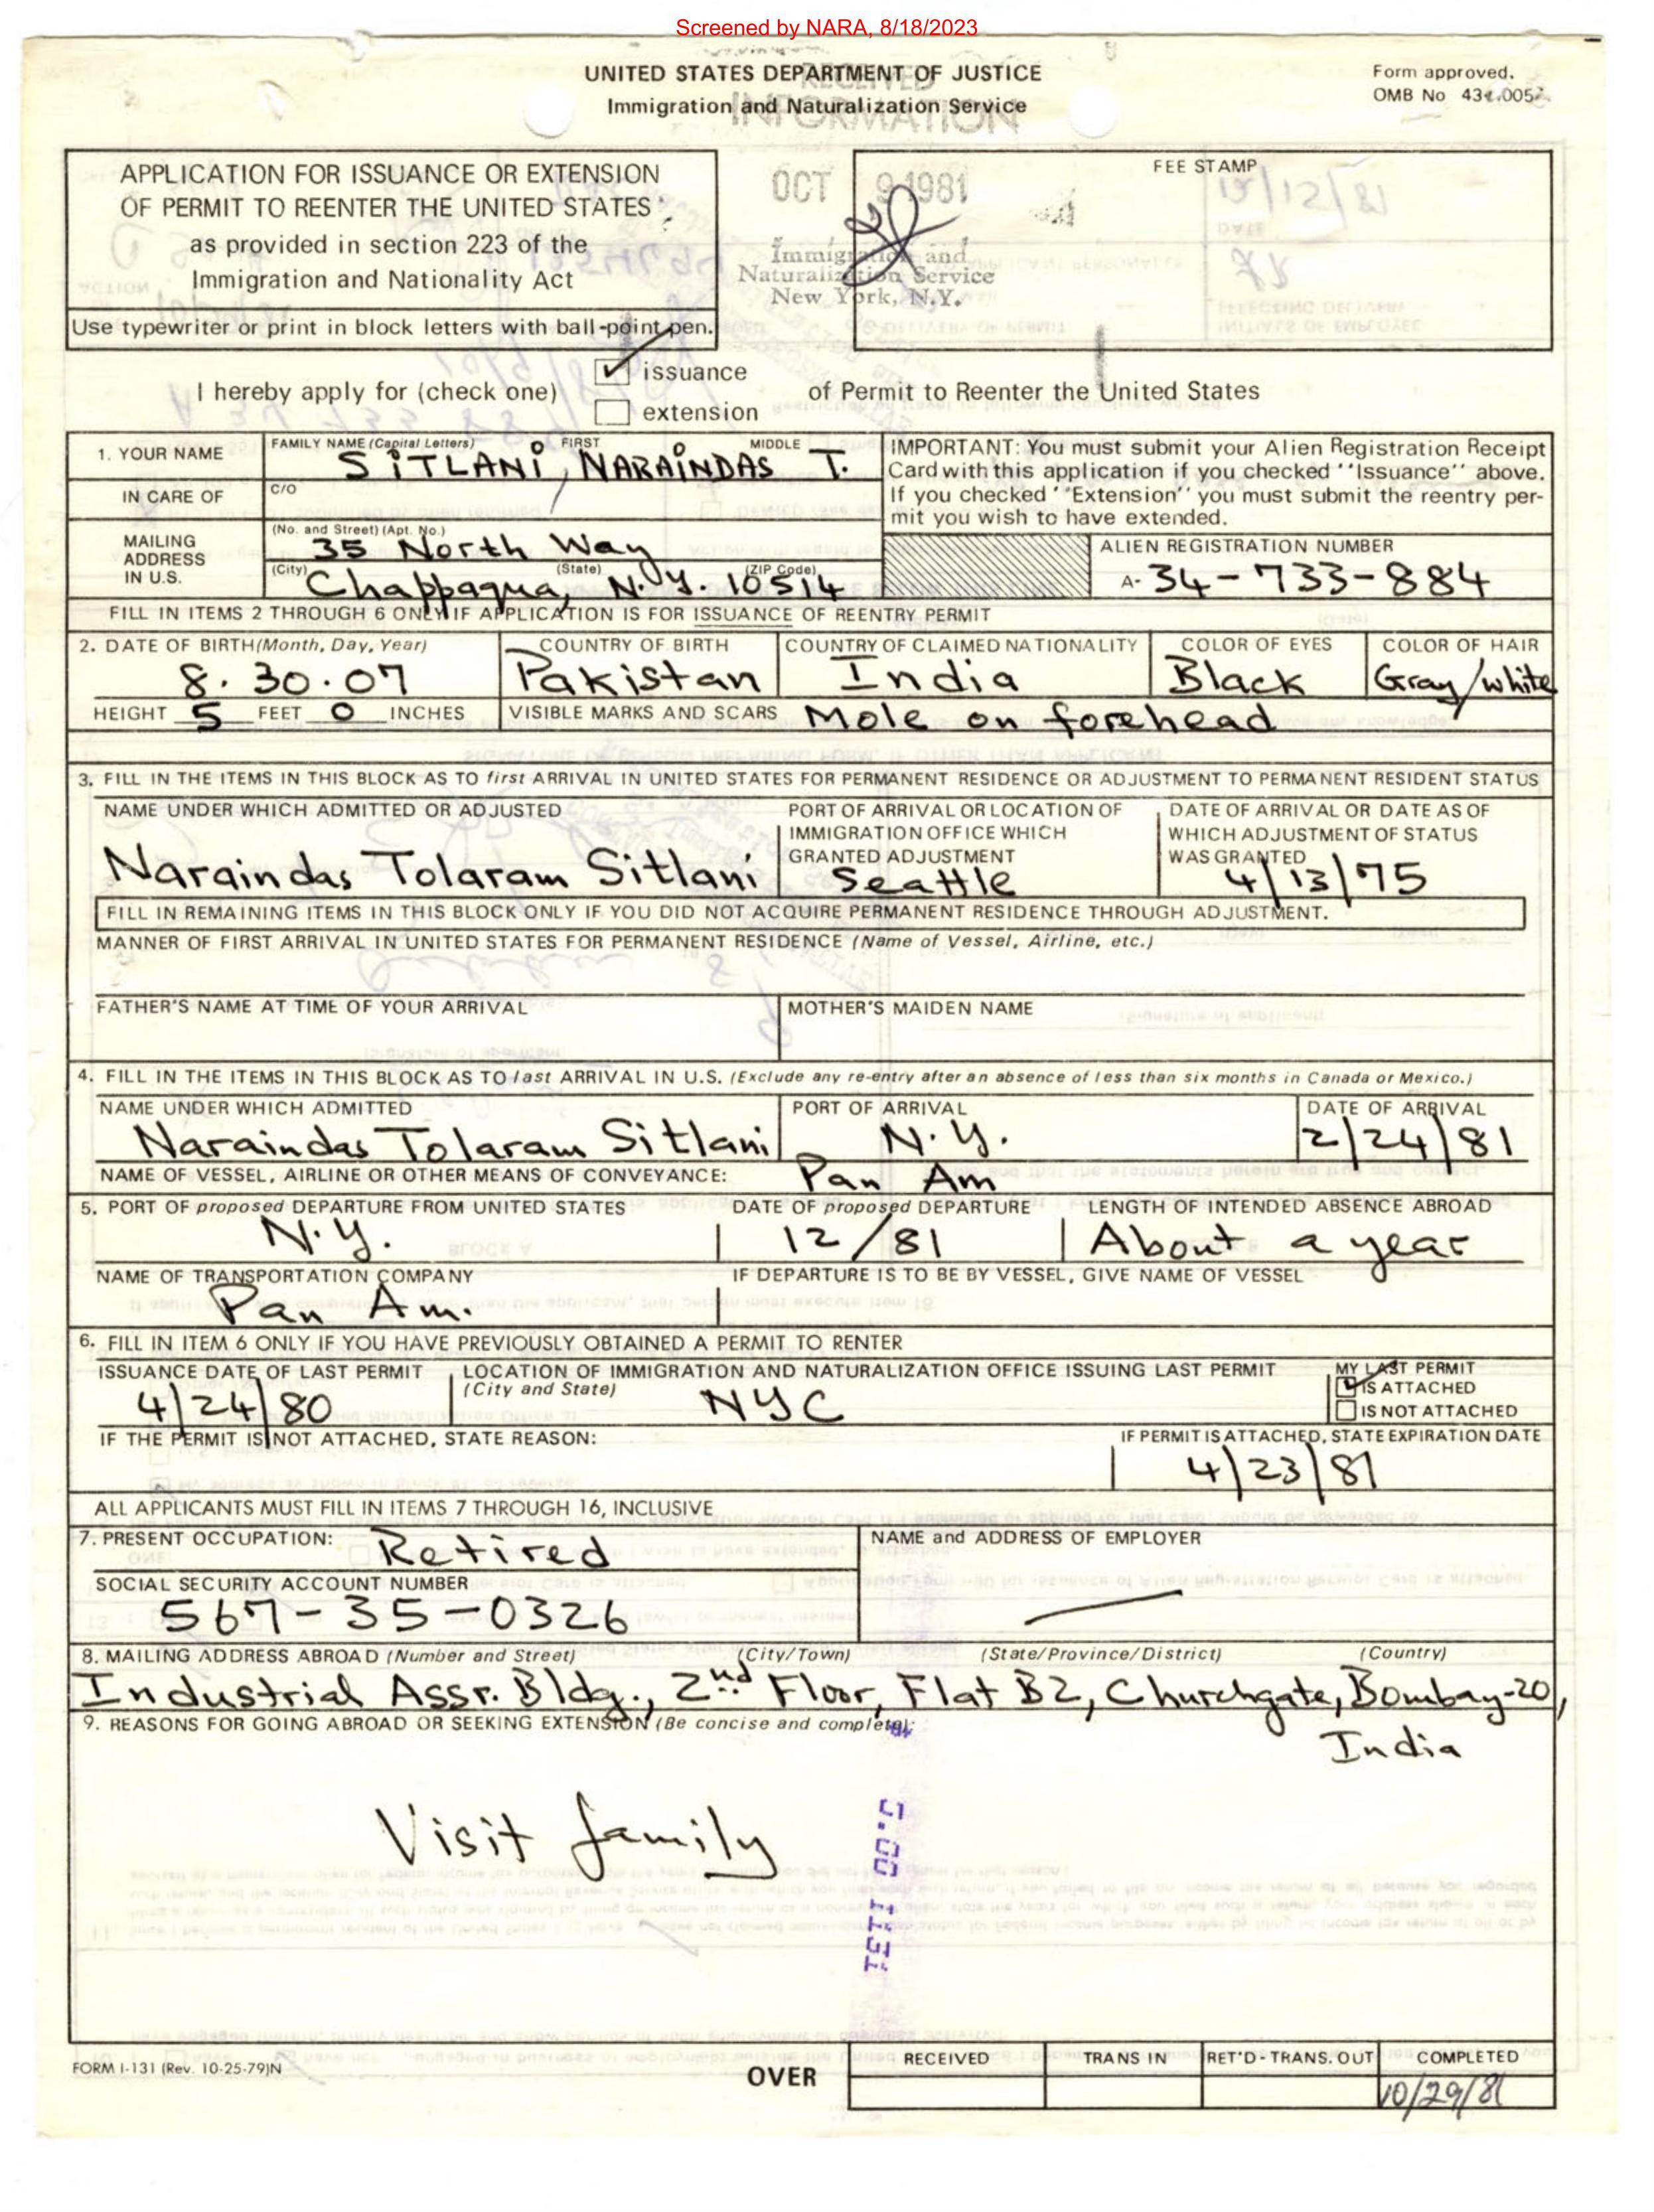 Screened by NARA, 8/18/2023
UNITED STATES DEPARTMENT OF JUSTICE
Immigration and Naturalization Service
Form approved.
OMB No
RECEIVED
INFORMATION
OCT 9 1981
Immigration and
Naturalization Service
New York, N.Y.
APPLICATION FOR ISSUANCE OR EXTENSION
OF PERMIT TO REENTER THE UNITED STATES
as provided in section 223 of the
Immigration and Nationality Act
Use typewriter or print in block letters with ball-point pen.
FEE STAMP
I hereby apply for (check one)
issuance
extension
of Permit to Reenter the United States
1. YOUR NAME
FAMILY NAME (Capital Letters) FIRST MIDDLE
SITLANI, NARAINDAS T.
IN CARE OF
C/O
MAILING
ADDRESS
IN U.S.
(No. and Street) (Apt. No.)
35 North Way
(City) (State) (ZIP Code)
Chappaqua, N.Y. 10514
IMPORTANT: You must submit your Alien Registration Receipt
Card with this application if you checked ''Issuance'' above.
If you checked ''Extension'' you must submit the reentry per-
mit you wish to have extended.
ALIEN REGISTRATION NUMBER
A- 34-733-884
FILL IN ITEMS 2 THROUGH 6 ONLY IF APPLICATION IS FOR ISSUANCE OF REENTRY PERMIT
2. DATE OF BIRTH (Month, Day, Year) COUNTRY OF BIRTH COUNTRY OF CLAIMED NATIONALITY COLOR OF EYES COLOR OF HAIR
8.30.07 Pakistan India Black Gray/white
HEIGHT 5 FEET 0 INCHES VISIBLE MARKS AND SCARS Mole on forehead
3. FILL IN THE ITEMS IN THIS BLOCK AS TO first ARRIVAL IN UNITED STATES FOR PERMANENT RESIDENCE OR ADJUSTMENT TO PERMANENT RESIDENT STATUS
NAME UNDER WHICH ADMITTED OR ADJUSTED
Naraindas Tolaram Sitlani
PORT OF ARRIVAL OR LOCATION OF
IMMIGRATION OFFICE WHICH
GRANTED ADJUSTMENT
Seattle
DATE OF ARRIVAL OR DATE AS OF
WHICH ADJUSTMENT OF STATUS
WAS GRANTED
4/13/75
FILL IN REMAINING ITEMS IN THIS BLOCK ONLY IF YOU DID NOT ACQUIRE PERMANENT RESIDENCE THROUGH ADJUSTMENT.
MANNER OF FIRST ARRIVAL IN UNITED STATES FOR PERMANENT RESIDENCE (Name of Vessel, Airline, etc.)
FATHER'S NAME AT TIME OF YOUR ARRIVAL MOTHER'S MAIDEN NAME
4. FILL IN THE ITEMS IN THIS BLOCK AS TO last ARRIVAL IN U.S. (Exclude any re-entry after an absence of less than six months in Canada or Mexico.)
NAME UNDER WHICH ADMITTED PORT OF ARRIVAL DATE OF ARRIVAL
Naraindas Tolaram Sitlani N.Y. 2/24/81
NAME OF VESSEL, AIRLINE OR OTHER MEANS OF CONVEYANCE: Pan Am
5. PORT OF proposed DEPARTURE FROM UNITED STATES DATE OF proposed DEPARTURE LENGTH OF INTENDED ABSENCE ABROAD
N.Y. 12/81 About a year
NAME OF TRANSPORTATION COMPANY IF DEPARTURE IS TO BE BY VESSEL, GIVE NAME OF VESSEL
Pan Am.
6. FILL IN ITEM 6 ONLY IF YOU HAVE PREVIOUSLY OBTAINED A PERMIT TO RENTER
ISSUANCE DATE OF LAST PERMIT
4/24/80
LOCATION OF IMMIGRATION AND NATURALIZATION OFFICE ISSUING LAST PERMIT
(City and State) NYC
MY LAST PERMIT
IS ATTACHED
IS NOT ATTACHED
IF THE PERMIT IS NOT ATTACHED, STATE REASON: IF PERMIT IS ATTACHED, STATE EXPIRATION DATE
4/23/81
ALL APPLICANTS MUST FILL IN ITEMS 7 THROUGH 16, INCLUSIVE
7. PRESENT OCCUPATION: Retired
NAME and ADDRESS OF EMPLOYER
SOCIAL SECURITY ACCOUNT NUMBER
567-35-0326
8. MAILING ADDRESS ABROAD (Number and Street) (City/Town) (State/Province/District) (Country)
Industrial Assr. Bldg., 2nd Floor, Flat B2, Churchgate, Bombay-20,
India
9. REASONS FOR GOING ABROAD OR SEEKING EXTENSION (Be concise and complete):
Visit family
FORM I-131 (Rev. 10-25-79)N
OVER
RECEIVED TRANS IN RET'D-TRANS. OUT COMPLETED
10/29/81